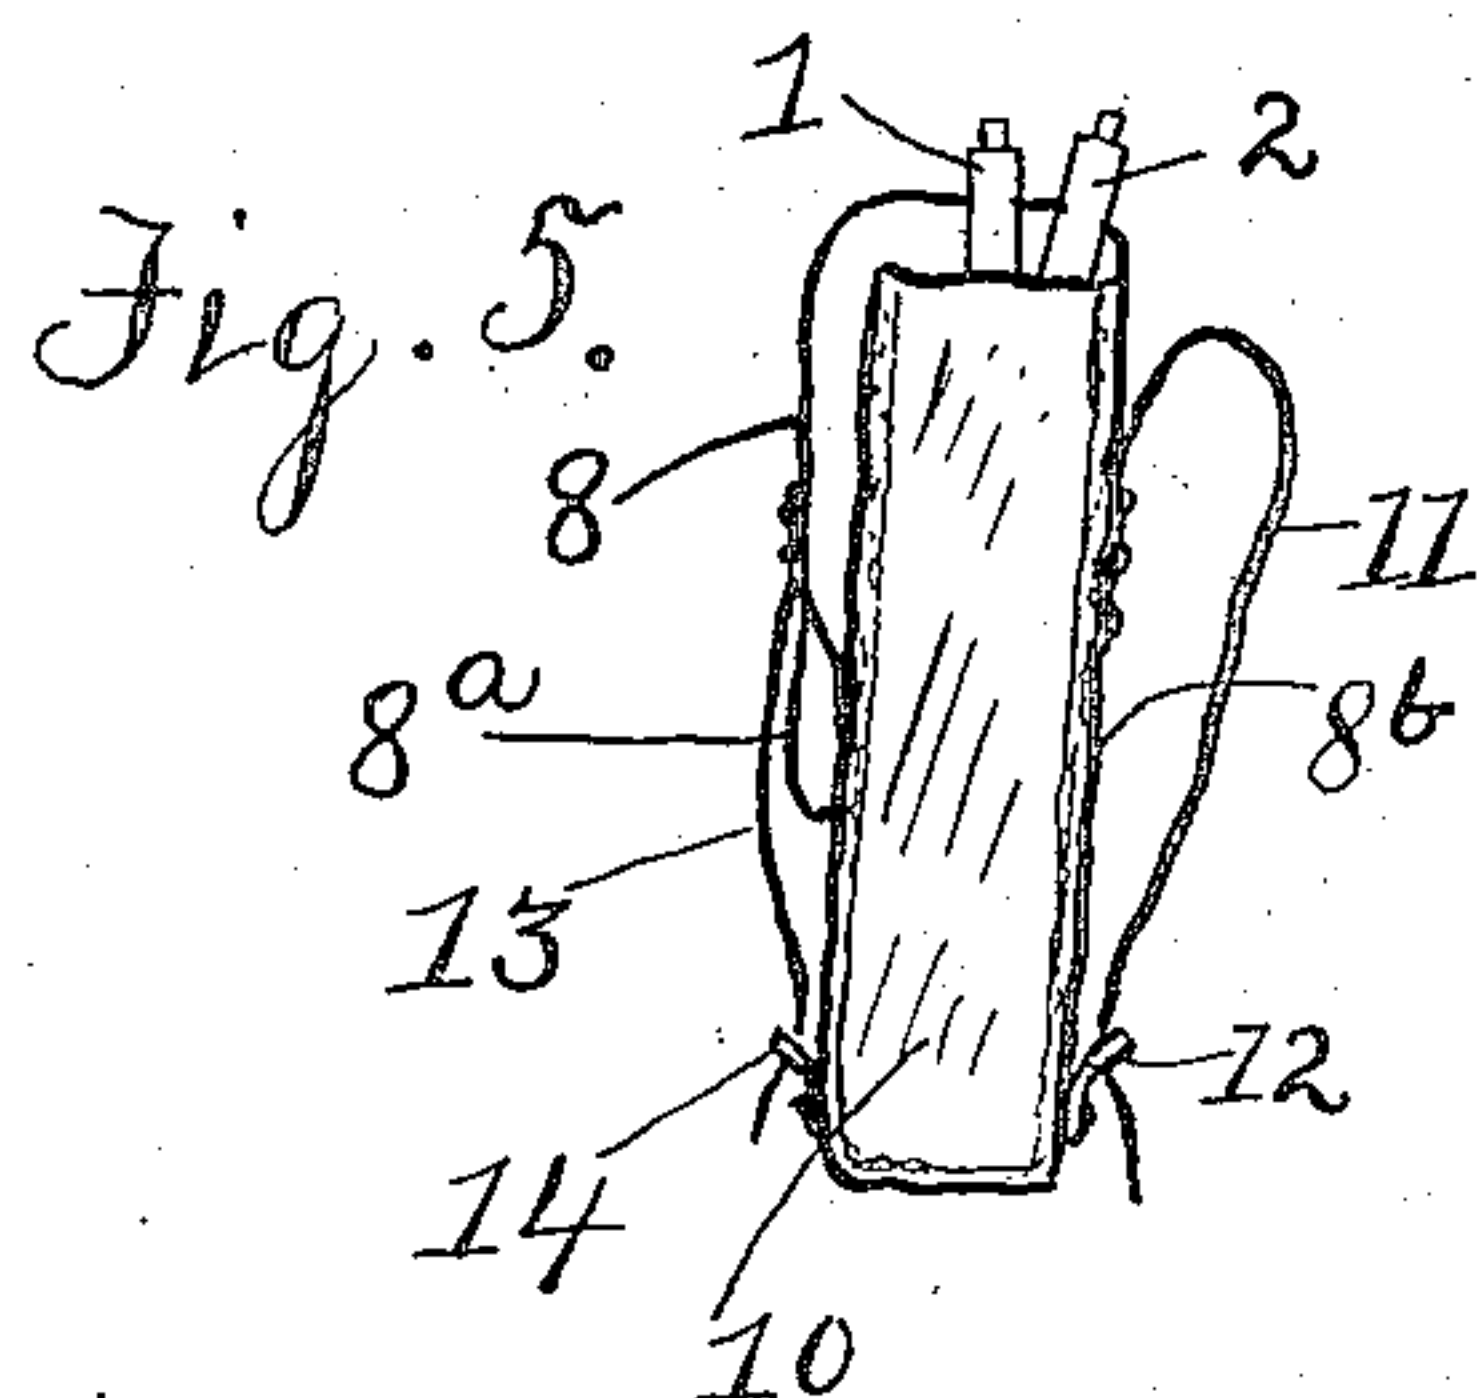 1
2
Fig. 5.
8
11
8a
8b
13
12
14
10